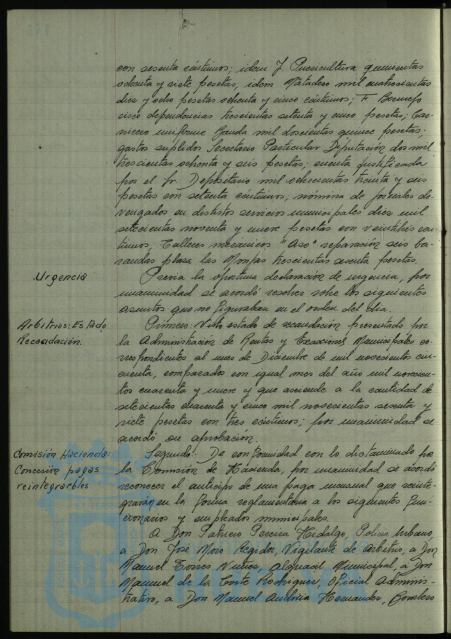 con sesenta céntimos; idem J. Puericultura quinientas
ochenta y siete pesetas, idem Matadero mil cuatrocientas
diez y ocho pesetas ochenta y cinco céntimos; F. Bermejo
cisco dependencias trescientas setenta y cinco pesetas;
uniforme Banda mil doscientas quince pesetas;
gastos suplidos Secretario Particular Diputación dos mil
trescientas ochenta y seis pesetas; cuenta justificada
por el Sr. Depositario mil ochocientas treinta y seis
pesetas con setenta céntimos; nómina de jornales de-
vengados en distintos servicios municipales diez mil
setecientas noventa y nueve pesetas con veintiséis cén-
timos; Talleres mecánicos "Aso" reparación seis ba-
randas plaza las Monjas trescientas sesenta pesetas.
Urgencia
Previa la oportuna declaración de urgencia, por
unanimidad se acordó resolver sobre los siguientes
asuntos que no figuraban en el orden del día.
Arbitrios: Estado
Recaudación.
Primero: Visto estado de recaudación presentado por
la Administración de Rentas y Exacciones Municipales co-
rrespondientes al mes de Diciembre de mil novecientos cin-
cuenta, comparados con igual mes del año mil novecien-
tos cuarenta y nueve y que asciende a la cantidad de
setecientas cuarenta y cinco mil novecientas setenta y
siete pesetas con tres céntimos; por unanimidad se
acordó su aprobación.
Comisión Hacienda:
Concesión pagas
reintegrables
Segundo: De conformidad con lo dictaminado por
la Comisión de Hacienda, por unanimidad se acordó
reconocer el anticipo de una paga mensual que reinte-
grarán en la forma reglamentaria a los siguientes Fun-
cionarios y empleados municipales.
A Don Patricio Pereira Hidalgo, Policía Urbano,
a Don José Moro Regidor, Vigilante de Arbitrios, a Don
Manuel Torres Núñez, Alguacil Municipal, a Don
Manuel de la Corte Rodríguez, Oficial Adminis-
trativo, a Don Manuel Hernández, Bombero